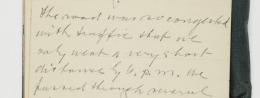 The road was so congested
with traffic that we
only went a very short
distance by 6. p.m. We
passed through several